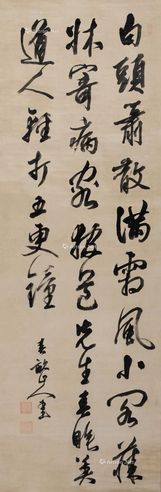 白頭蕭散滿霜風小閣藤
牀寄病容報道先生春睡美
道人輕打五更鐘